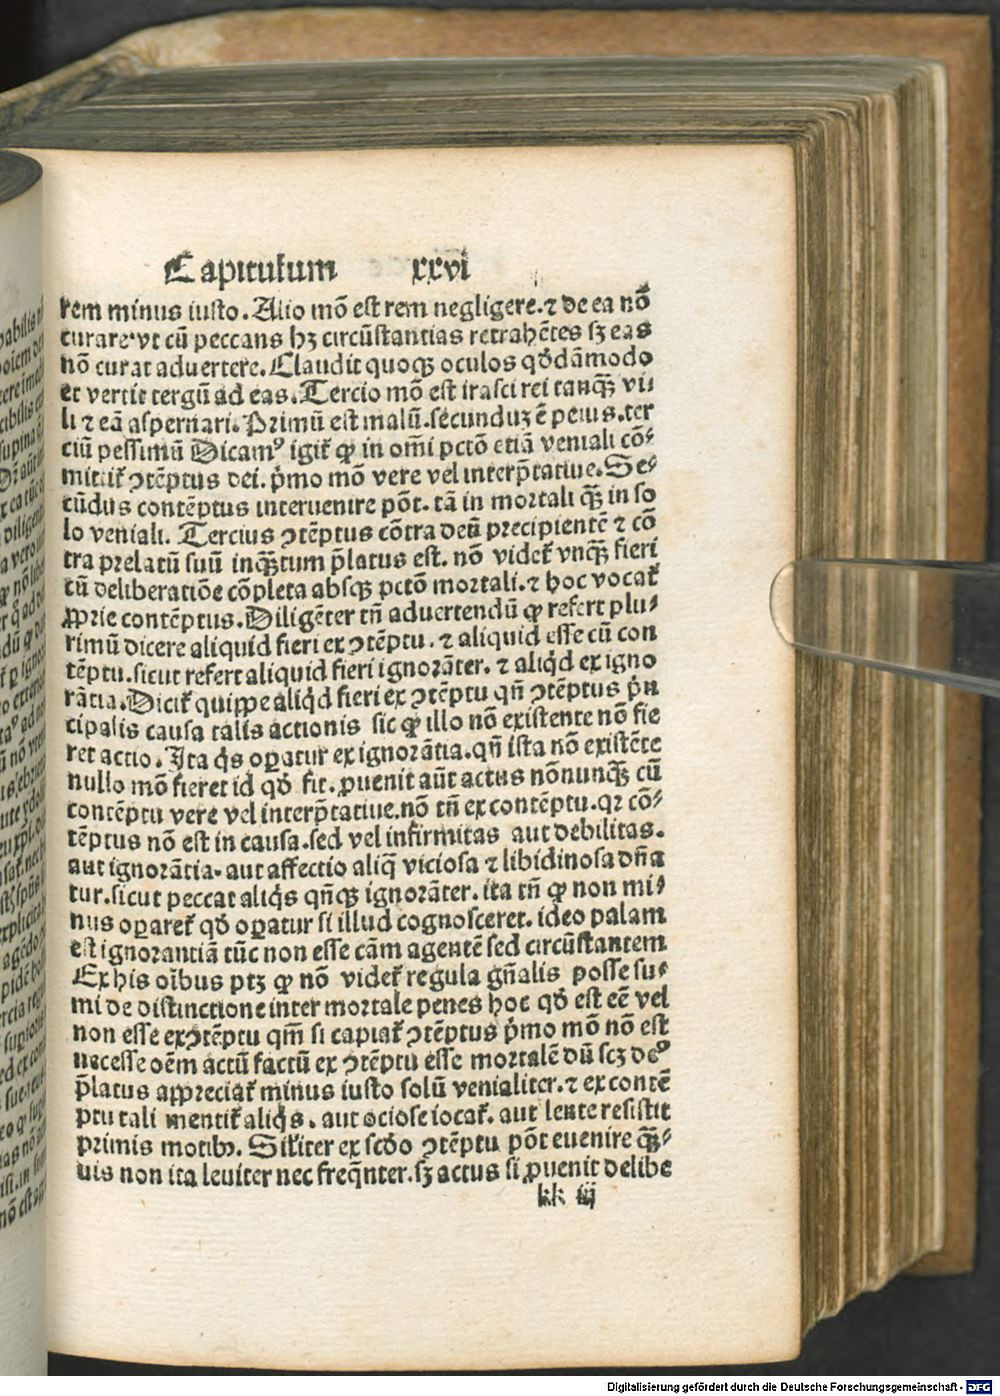 Capitulum xxvi
rem minus iusto. Alio mõ est rem negligere. ⁊ de ea nõ
curare. vt cũ peccans hꝫ circũstantias retrahẽtes sꝫ eas
nõ curat aduertere. Claudit quoqꝫ oculos qđdãmodo
et vertit tergũ ad eas. Tercio mõ est irasci rei tanqꝫ vi⸗
li ⁊ eã aspernari. Primũ est malũ. secunduꝫ ẽ peius. ter
ciũ pessimũ Dicamꝰ igit̃ ꝙ in om̃i pctõ etiã veniali cõ⸗
mittit̃ ↄtẽptus dei. p̃mo mõ vere vel interp̃tatiue. Se⸗
cũdus contẽptus interuenire põt. tã in mortali qꝫ̃ in so
lo veniali. Tercius ↄtẽptus cõtra deũ precipientẽ ⁊ cõ
tra prelatũ suũ inqꝫ̃tum p̃latus est. nõ videt̃ vnqꝫ̃ fieri
cũ deliberatiõe cõpleta absqꝫ pctõ mortali. ⁊ hoc vocat̃
ꝓprie contẽptus. Diligẽter tñ aduertendũ ꝙ refert plu⸗
rimũ dicere aliquid fieri ex ↄtẽptu. ⁊ aliquid esse cũ con
tẽptu. sicut refert aliquid fieri ignorãter. ⁊ aliqͥd ex igno
rãtia. Dicit̃ quippe aliqͥd fieri ex ↄtẽptu qñ ↄtẽptus p̃n
cipalis causa talis actionis sic ꝙ illo nõ existente nõ fie
ret actio. Ita qͥs oꝑatur ex ignorãtia. qñ ista nõ existẽte
nullo mõ fieret id qđ fit. ꝓuenit aũt actus nõnunqꝫ̃ cũ
contẽptu vere vel interp̃tatiue. nõ tñ ex contẽptu. qꝛ cõ⸗
tẽptus nõ est in causa. sed vel infirmitas aut debilitas.
aut ignorãtia. aut affectio aliq̃ viciosa ⁊ libidinosa dñã
tur. sicut peccat aliqͥs qñqꝫ ignorãter. ita tñ ꝙ non mi⸗
nus oꝑaret̃ qđ oꝑatur si illud cognosceret. ideo palam
est ignorantiã tũc non esse cãm agentẽ sed circũstantem
Ex his oĩbus ptꝫ ꝙ nõ videt̃ regula gñalis posse su⸗
mi de distinctione inter mortale penes hoc qđ est eẽ vel
non esse ex ↄtẽptu qm̃ si capiat̃ ↄtẽptus p̃mo mõ nõ est
necesse oẽm actũ factũ ex ↄtẽptu esse mortalẽ dũ scꝫ deꝰ
p̃latus appreciat̃ minus iusto solũ venialiter. ⁊ ex contẽ
ptu tali mentit̃ aliqͥs. aut ociose iocat̃. aut lente resistit
primis motibꝰ. Sil̃iter ex scđo ↄtẽptu põt euenire qꝫ̃⸗
uis non ita leuiter nec freq̃nter. sꝫ actus si ꝓuenit delibe
kk iij
Digitalisierung gefördert durch die Deutsche Forschungsgemeinschaft - DFG